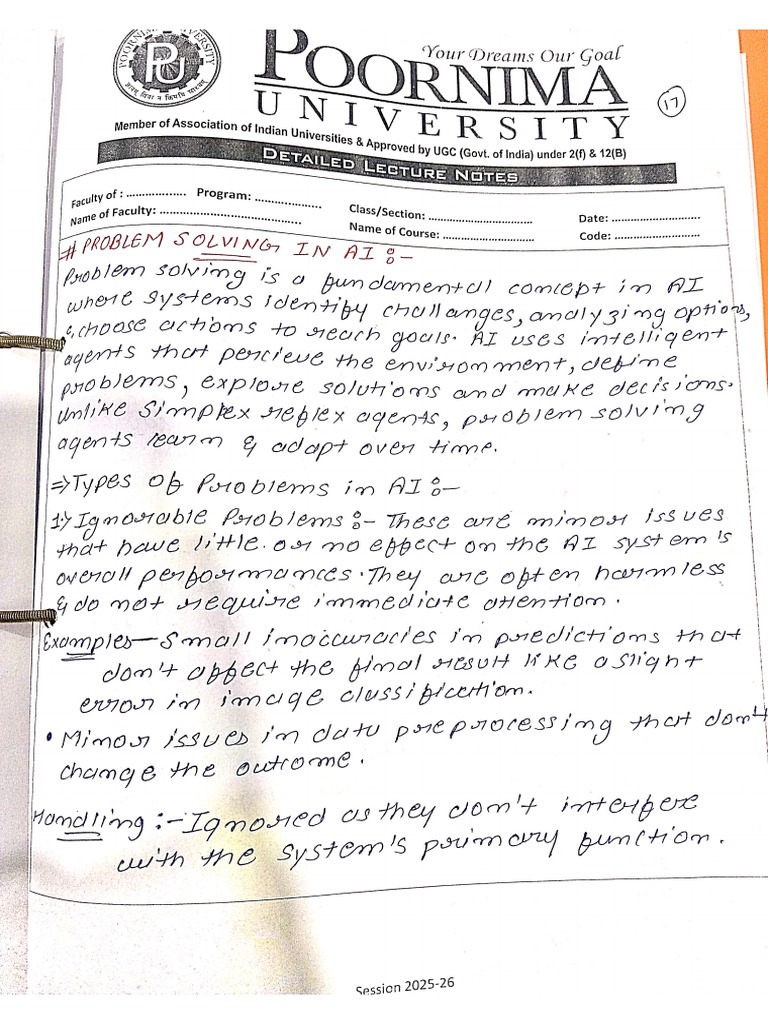 POORNIMA UNIVERSITY
PU
Your Dreams Our Goal
POORNIMA
UNIVERSITY
17
Member of Association of Indian Universities & Approved by UGC (Govt. of India) under 2(f) & 12(B)
DETAILED LECTURE NOTES
Faculty of : .................. Program: .................... Class/Section: ............................... Date: ...........................
Name of Faculty: .......................................... Name of Course: ........................... Code: ..........................
# PROBLEM SOLVING IN AI :-
Problem solving is a fundamental concept in AI
where systems identify challenges, analyzing options,
& choose actions to reach goals. AI uses intelligent
agents that percieve the environment, define
problems, explore solutions and make decisions.
Unlike Simplex reflex agents, problem solving
agents learn & adapt over time.
=> Types of Problems in AI :-
1:) Ignorable Problems :- These are minor issues
that have little or no effect on the AI system's
overall performances. They are often harmless
& do not require immediate attention.
Examples - Small inaccuracies in predictions that
don't affect the final result like a slight
error in image classification.
• Minor issues in data preprocessing that don't
change the outcome.
Handling :- Ignored as they don't interfere
with the system's primary function.
Session 2025-26